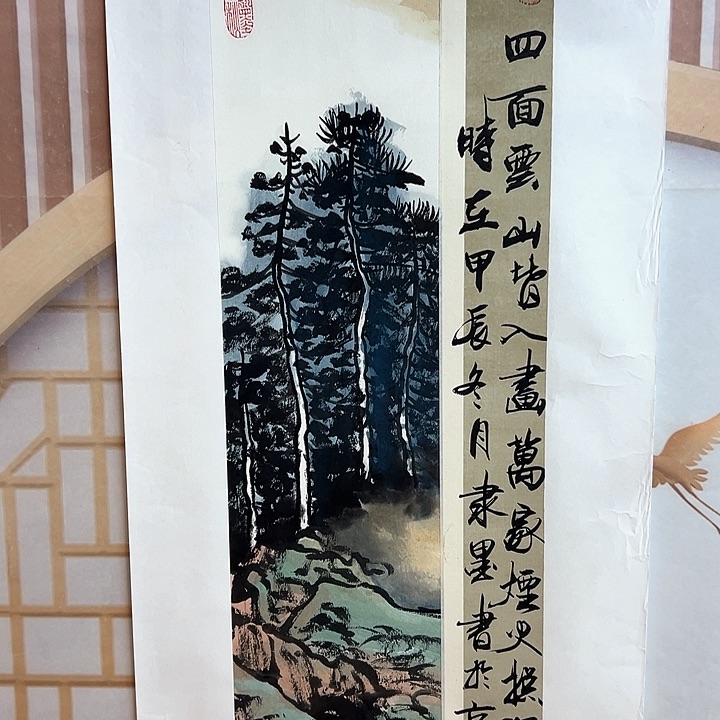 四面雲山皆入畫萬家煙火
時在甲辰冬月隶墨書於京